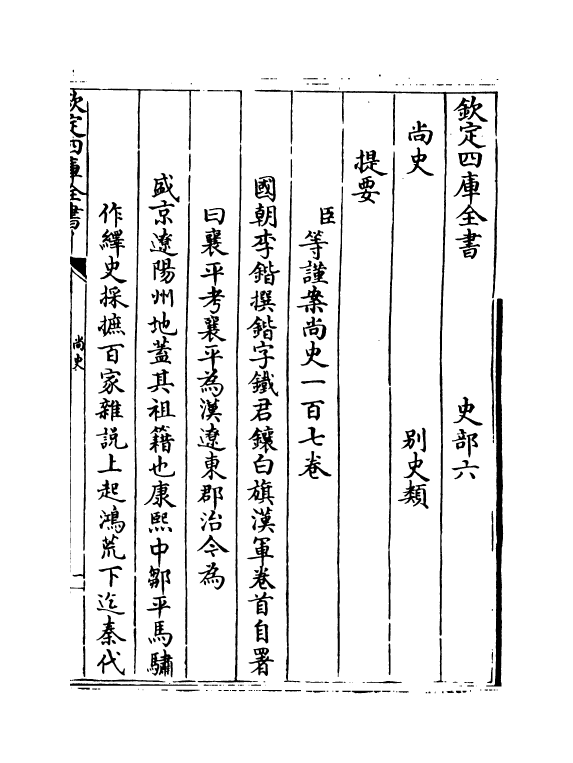 欽定四庫全書　史部六
尚史　別史類
提要
臣等謹案尚史一百七卷
國朝李鍇撰鍇字鐵君鑲白旗漢軍卷首自署
曰襄平考襄平為漢遼東郡治今為
盛京遼陽州地蓋其祖籍也康熙中鄒平馬驌
作繹史採摭百家雜説上起鴻荒下迄秦代
欽定四庫全書
尚史
一